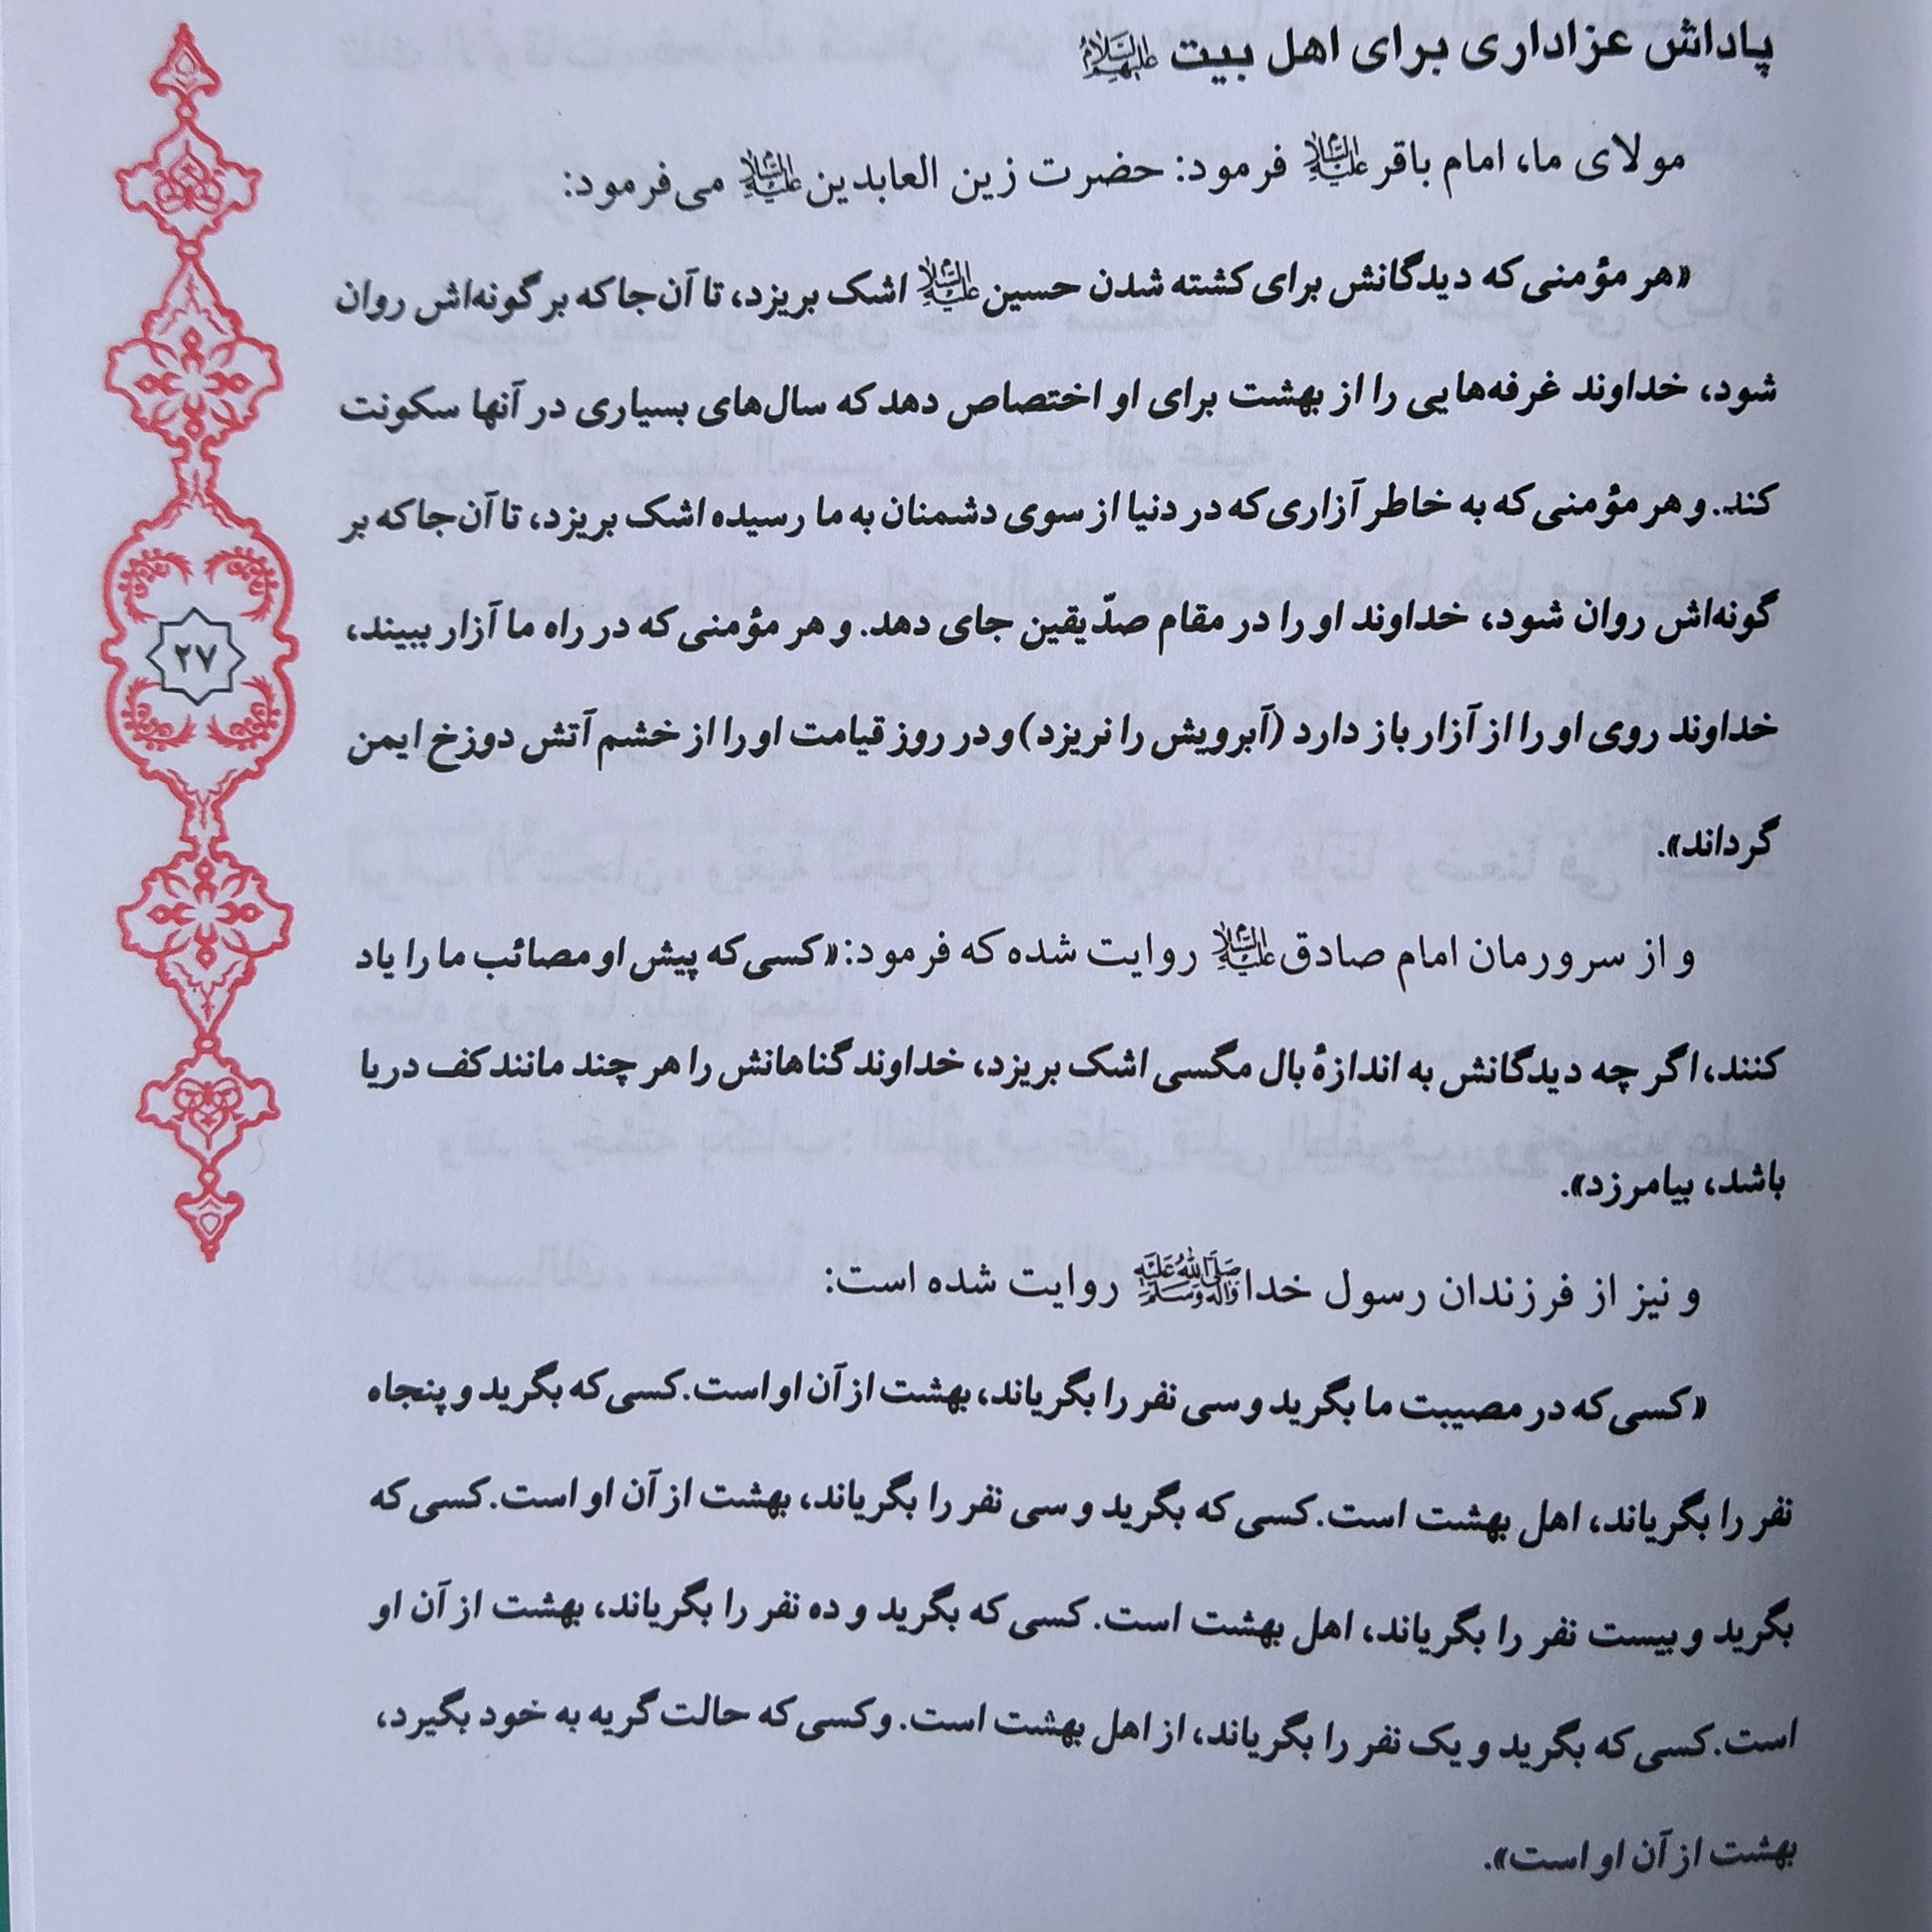 پاداش عزاداری برای اهل بیت علیهم السلام
مولای ما، امام باقر علیه السلام فرمود: حضرت زین العابدین علیه السلام می‌فرمود:
«هر مؤمنی که دیدگانش برای کشته شدن حسین علیه السلام اشک بریزد، تا آن‌جا که بر گونه‌اش روان
شود، خداوند غرفه‌هایی را از بهشت برای او اختصاص دهد که سال‌های بسیاری در آنها سکونت
کند. و هر مؤمنی که به خاطر آزاری که در دنیا از سوی دشمنان به ما رسیده اشک بریزد، تا آن‌جا که بر
گونه‌اش روان شود، خداوند او را در مقام صدّیقین جای دهد. و هر مؤمنی که در راه ما آزار ببیند،
۲۷
خداوند روی او را از آزار باز دارد (آبرویش را نریزد) و در روز قیامت او را از خشم آتش دوزخ ایمن
گرداند».
و از سرورمان امام صادق علیه السلام روایت شده که فرمود: «کسی که پیش او مصائب ما را یاد
کنند، اگر چه دیدگانش به اندازهٔ بال مگسی اشک بریزد، خداوند گناهانش را هر چند مانند کف دریا
باشد، بیامرزد».
و نیز از فرزندان رسول خدا صلی الله علیه وآله وسلم روایت شده است:
«کسی که در مصیبت ما بگرید و سی نفر را بگریاند، بهشت از آن او است. کسی که بگرید و پنجاه
نفر را بگریاند، اهل بهشت است. کسی که بگرید و سی نفر را بگریاند، بهشت از آن او است. کسی که
بگرید و بیست نفر را بگریاند، اهل بهشت است. کسی که بگرید و ده نفر را بگریاند، بهشت از آن او
است. کسی که بگرید و یک نفر را بگریاند، از اهل بهشت است. و کسی که حالت گریه به خود بگیرد،
بهشت از آن او است».